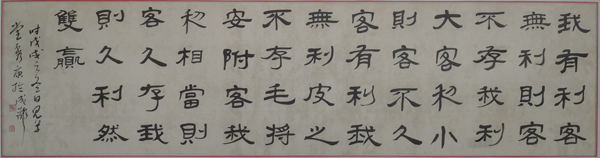 我有利客
無利則客
不存我利
大客利小
則客不久
客有利我
無利皮之
不存毛將
安附客我
利相當則
客久存我
則久利然
雙贏
时戊戌之冬日
於成都